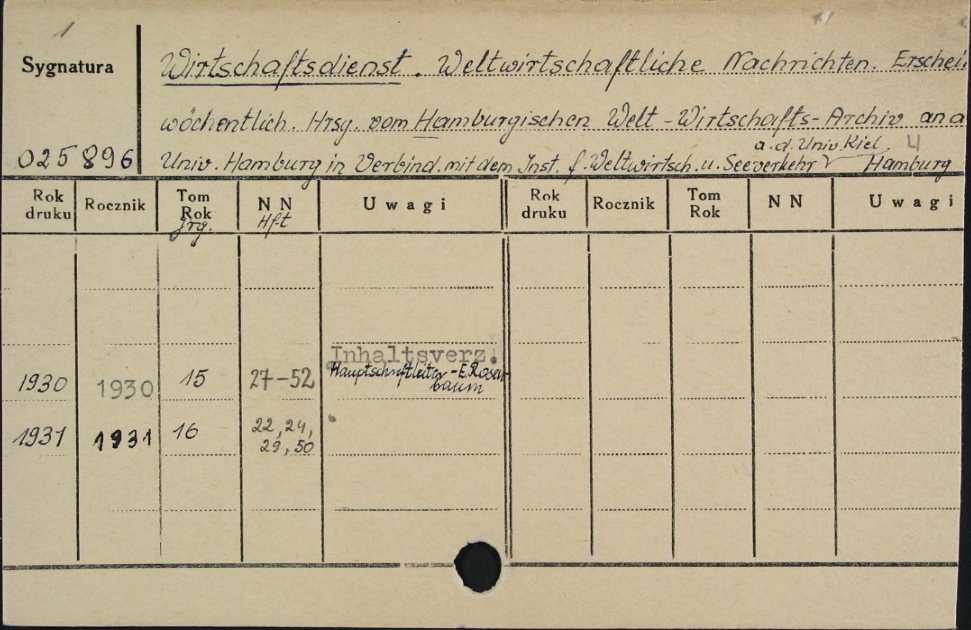 Sygnatura
Wirtschaftsdienst. Weltwirtschaftliche Nachrichten. Erschei
wöchentlich. Hrsg. vom Hamburgischen Welt-Wirtschafts-Archiv an d
a.d. Univ. Kiel 4
025896 Univ. Hamburg in Verbind. mit dem Inst. f. Weltwirtsch. u. Seeverkehr Hamburg
Rok druku Rocznik Tom Rok Jrg. NN Hft Uwagi Rok druku Rocznik Tom Rok NN Uwagi
Inhaltsverz.
1930 1930 15 27-52 Hauptschriftleiter - E. Rosen-
baum
1931 1931 16 22, 24,
29, 50